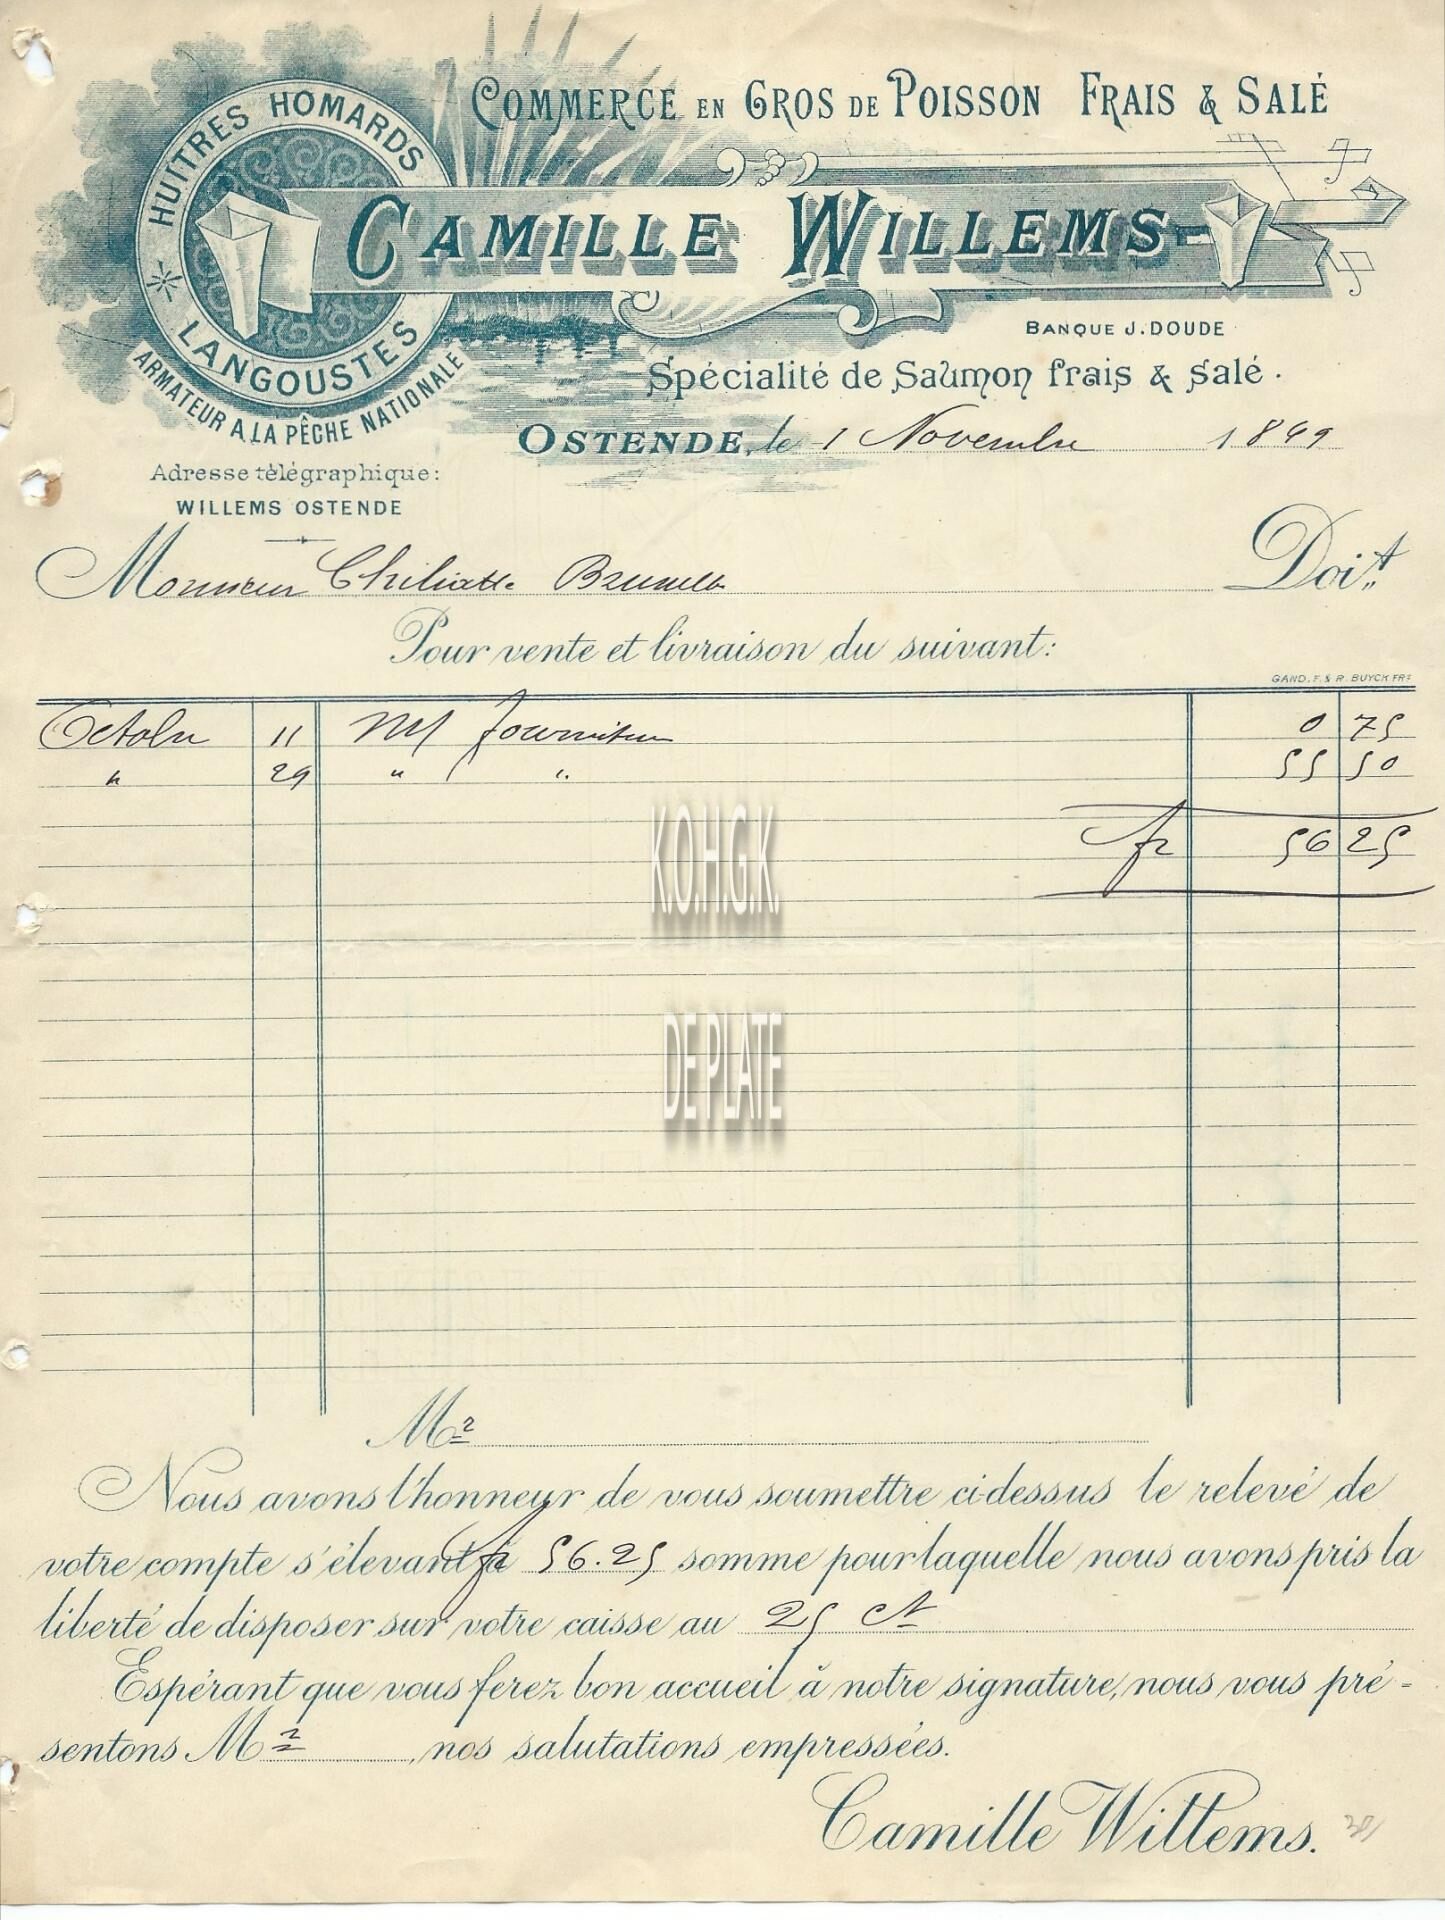 COMMERCE EN GROS DE POISSON FRAIS & SALÉ
HUÎTRES HOMARDS
LANGOUSTES
ARMATEUR A LA PÊCHE NATIONALE
CAMILLE WILLEMS
BANQUE J. DOUDE
Spécialité de Saumon frais & salé.
OSTENDE, le 1 Novembre 1899
Adresse télégraphique:
WILLEMS OSTENDE
Monsieur Bruxelles Doit
Pour vente et livraison du suivant:
GAND, F. & R. BUYCK FRS
Octobre 11 M/ fourniture 0 75
" 29 " " 55 50
fr 56 25
K.O.H.G.K.
DE PLATE
Mr
Nous avons l'honneur de vous soumettre ci-dessus le relevé de
votre compte s'élevant à fr 56.25 somme pour laquelle nous avons pris la
liberté de disposer sur votre caisse au 25 ct
Espérant que vous ferez bon accueil à notre signature, nous vous pré-
sentons Mr , nos salutations empressées.
Camille Willems.